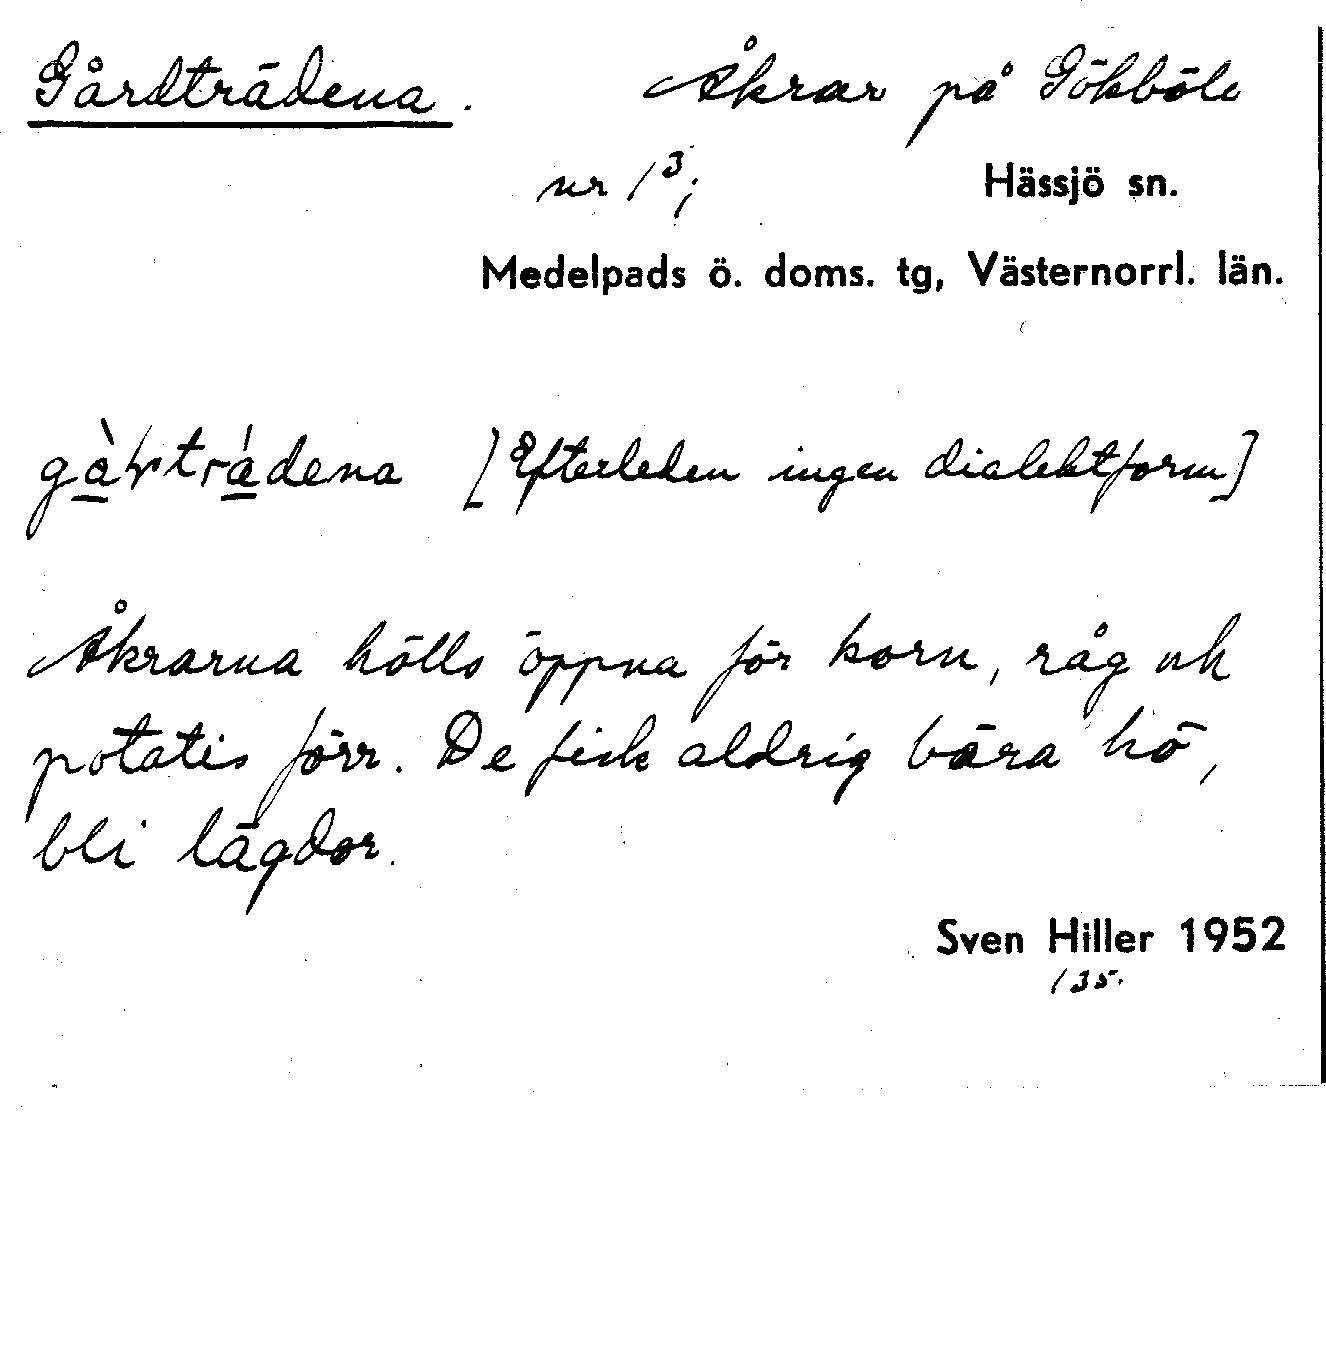 Gårdträdena. Åkrar på Gökböle
nr 1³; Hässjö sn.
Medelpads ö. doms. tg, Västernorrl. län.
[Efterleden ingen dialektform]
Åkrarna hölls öppna för korn, råg och
potatis förr. De fick aldrig bära hö,
bli lägdor.
Sven Hiller 1952
135.